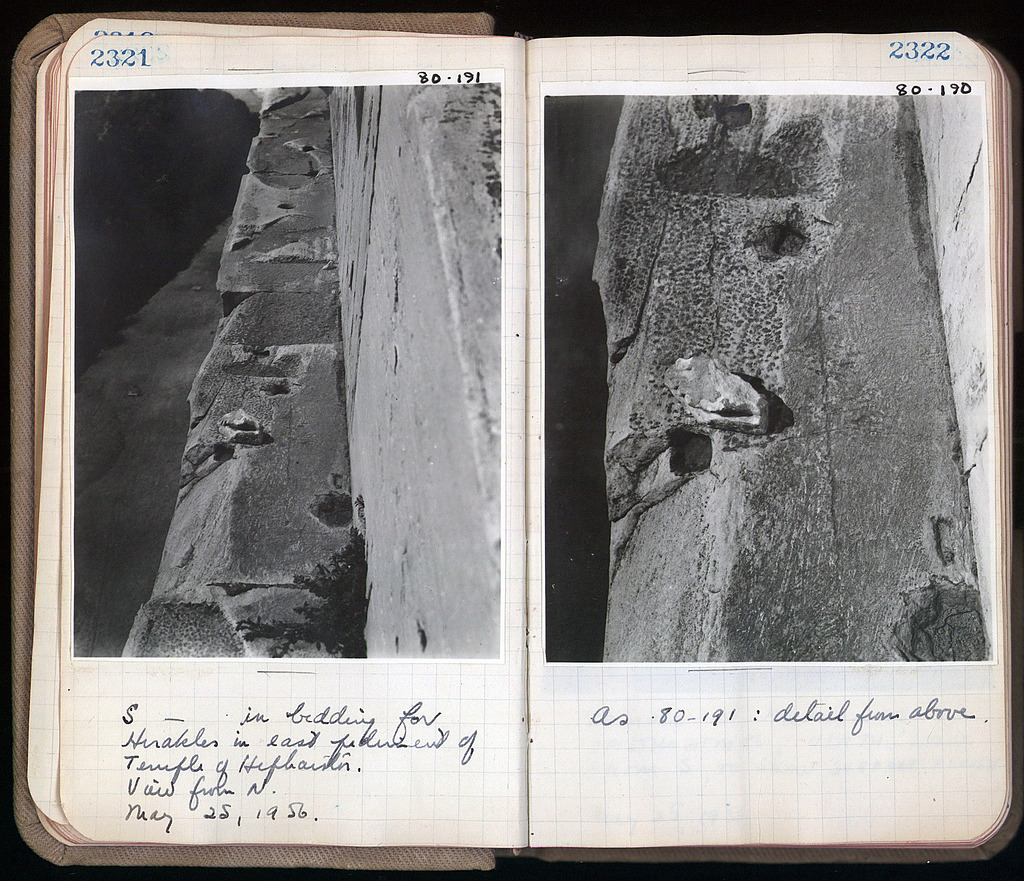 2321
80-191
S — in bedding for
Herakles in east pediment of
Temple of Hephaistos.
View from N.
May 25, 1956.
2322
80-190
As 80-191 : detail from above.